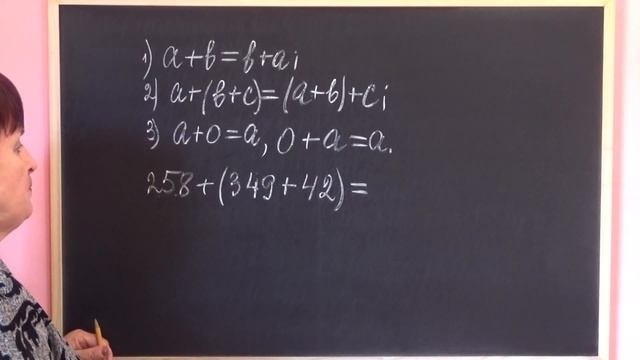 1) a+b=b+a;
2) a+(b+c)=(a+b)+c;
3) a+0=a, 0+a=a.
258+(349+42)=